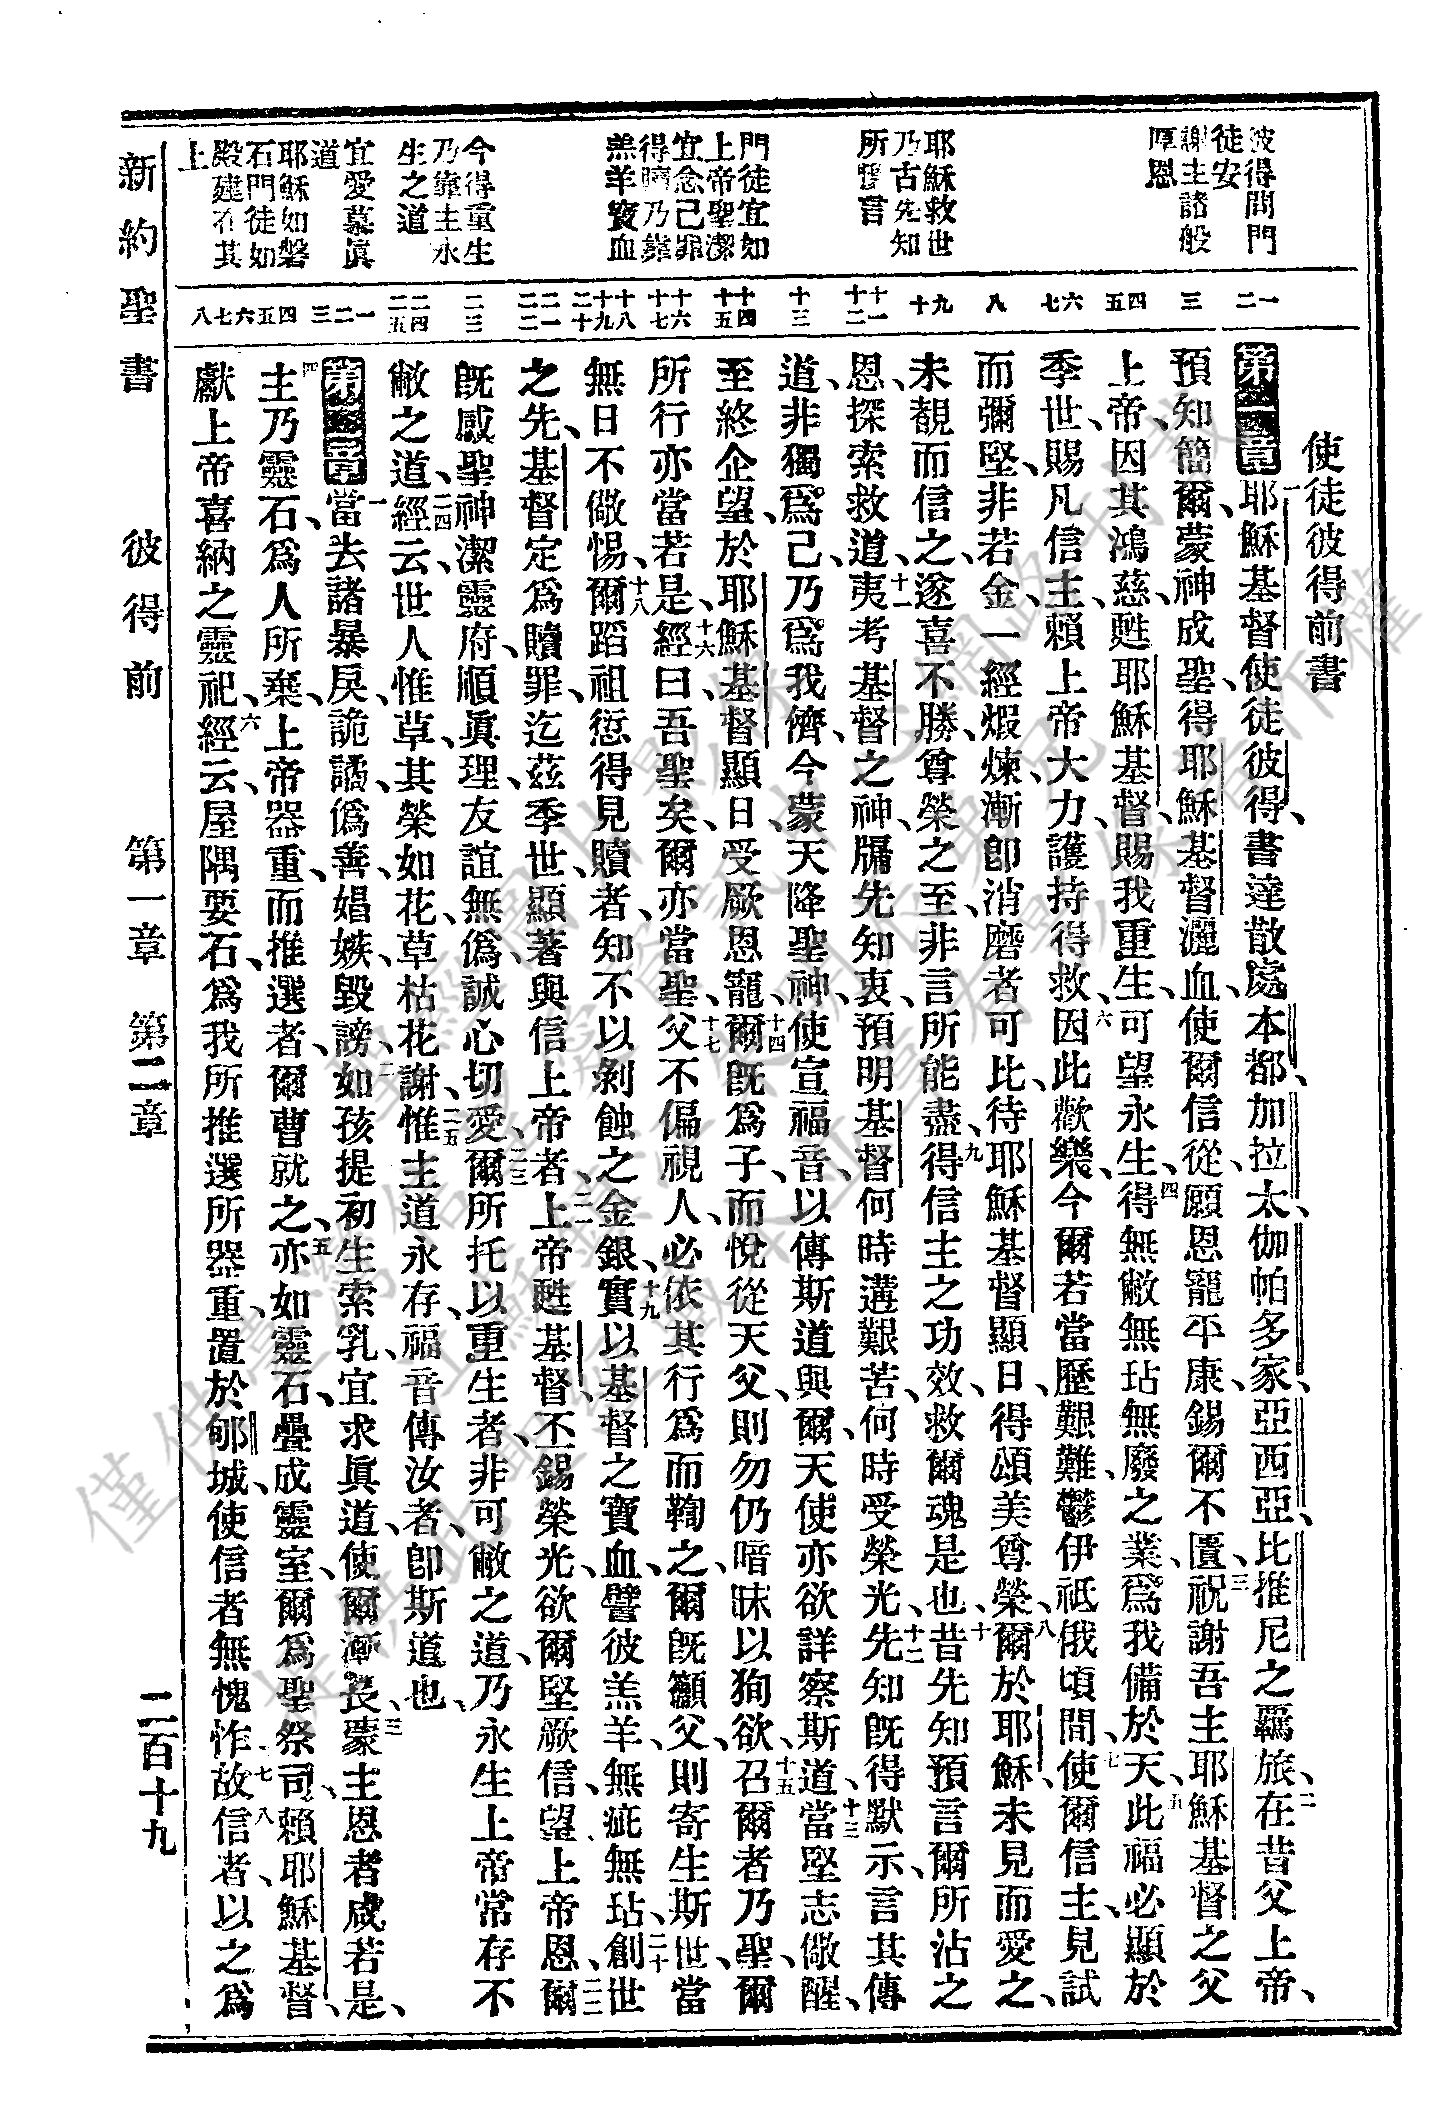 新約聖書 彼得前 第一章 第二章 二百十九
彼得問門
徒安
謝主諸般
厚恩
耶穌救世
乃古先知
所預言
門徒宜如
上帝聖潔
宜念己罪
得贖乃靠
羔羊寶血
今得重生
乃靠主永
生之道
宜愛慕眞
道
耶穌如磐
石門徒如
殿建在其
上
一二 三 四五 六七 八 九十 十一十二 十三 十四十五 十六十七 十八十九二十 二一二二 二三 二四二五 一二三 四五六七八
使徒彼得前書
第一章一耶穌基督使徒彼得、書達散處本都、加拉太、伽帕多家、亞西亞、比推尼之羈旅、二在昔父上帝、
預知簡爾、蒙神成聖、得耶穌基督灑血、使爾信從、願恩寵平康、錫爾不匱、三祝謝吾主耶穌基督之父
上帝、因其鴻慈、甦耶穌基督、賜我重生、可望永生、四得無敝無玷無廢之業、爲我備於天、五此福必顯於
季世、賜凡信主、賴上帝大力、護持得救、六因此歡樂、今爾若當歷艱難、鬱伊祗俄頃間、七使爾信主、見試
而彌堅、非若金、一經煆煉、漸卽消磨者可比、待耶穌基督顯日、得頌美尊榮、八爾於耶穌、未見而愛之、
未覩而信之、遂喜不勝、尊榮之至、非言所能盡、九得信主之功效、救爾魂是也、十昔先知預言爾所沾之
恩、探索救道、十一夷考基督之神、牖先知衷、預明基督何時遘艱苦、何時受榮光、十二先知旣得默示、言其傳
道、非獨爲己、乃爲我儕、今蒙天降聖神、使宣福音、以傳斯道與爾、天使亦欲詳察斯道、十三當堅志儆醒、
至終企望、於耶穌基督顯日、受厥恩寵、十四爾旣爲子、而悅從天父、則勿仍暗昧以狥欲、十五召爾者乃聖、爾
所行亦當若是、十六經曰、吾聖矣、爾亦當聖、十七父不偏視人、必依其行爲而鞫之、爾旣籲父、則寄生斯世、當
無日不儆惕、十八爾蹈祖愆、得見贖者、知不以剝蝕之金銀、十九實以基督之寶血、譬彼羔羊、無疵無玷、二十創世
之先、基督定爲贖罪、迄茲季世、顯著與信上帝者、二一上帝甦基督、丕錫榮光、欲爾堅厥信、望上帝恩、二二爾
旣感聖神、潔靈府、順眞理、友誼無僞、誠心切愛、二三爾所托以重生者、非可敝之道、乃永生上帝常存不
敝之道、二四經云、世人惟草、其榮如花、草枯花謝、二五惟主道永存、福音傳汝者、卽斯道也、
第二章一當去諸暴戾、詭譎、僞善、娼嫉、毀謗、二如孩提初生索乳、宜求眞道、使爾漸長、三蒙主恩者咸若是、
四主乃靈石、爲人所棄、上帝器重、而推選者、爾曹就之、五亦如靈石、疊成靈室、爾爲聖祭司、賴耶穌基督、
獻上帝喜納之靈祀、六經云、屋隅要石、爲我所推選所器重、置於郇城、使信者無愧怍、七故信者、八以之爲